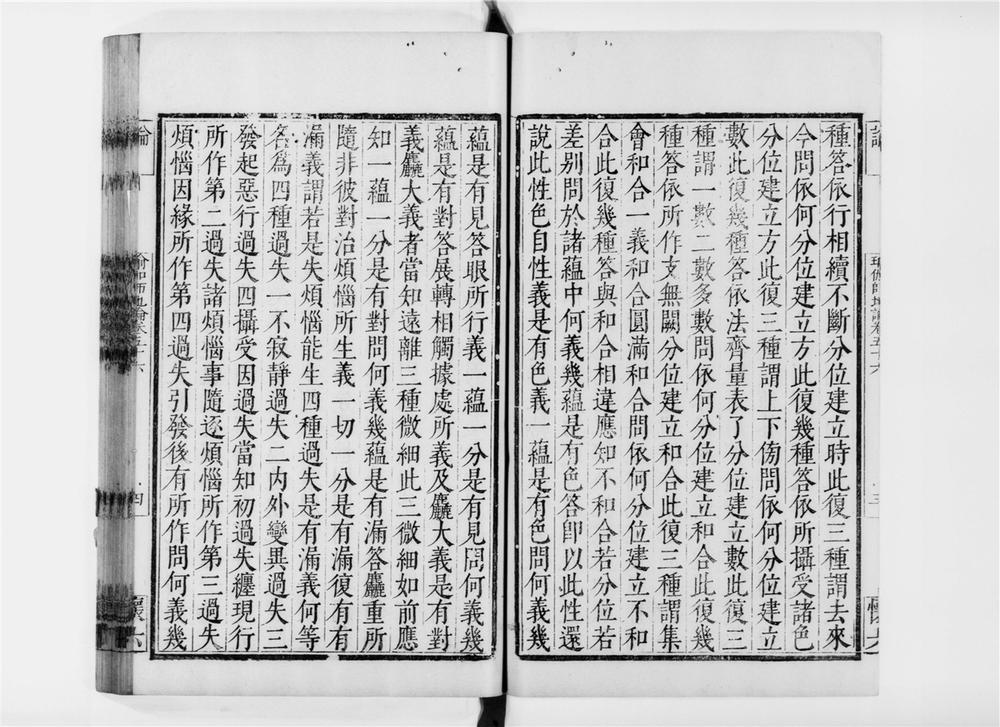 種答依行相續不斷分位建立時此復三種謂去來
今問依何分位建立方此復幾種答依所攝受諸色
分位建立方此復三種謂上下傍問依何分位建立
數此復幾種答依法齊量表了分位建立數此復三
種謂一數二數多數問依何分位建立和合此復幾
種答依所作支無闕分位建立和合此復三種謂集
會和合一義和合圓滿和合問依何分位建立不和
合此復幾種答與和合相違應知不和合若分位若
差别問於諸蘊中何義幾蘊是有色答卽以此性還
說此性色自性義是有色義一蘊是有色問何義幾
蘊是有見答眼所行義一蘊一分是有見問何義幾
蘊是有對答展轉相觸據處所義及麤大義是有對
義麤大義者當知遠離三種微細此三微細如前應
知一蘊一分是有對問何義幾蘊是有漏答麤重所
隨非彼對治煩惱所生義一切一分是有漏復有有
漏義謂若是失煩惱能生四種過失是有漏義何等
名爲四種過失一不寂靜過失二內外變異過失三
發起惡行過失四攝受因過失當知初過失纏現行
所作第二過失諸煩惱事隨逐煩惱所作第三過失
煩惱因緣所作第四過失引發後有所作問何義幾
瑜伽師地論卷五十六
四